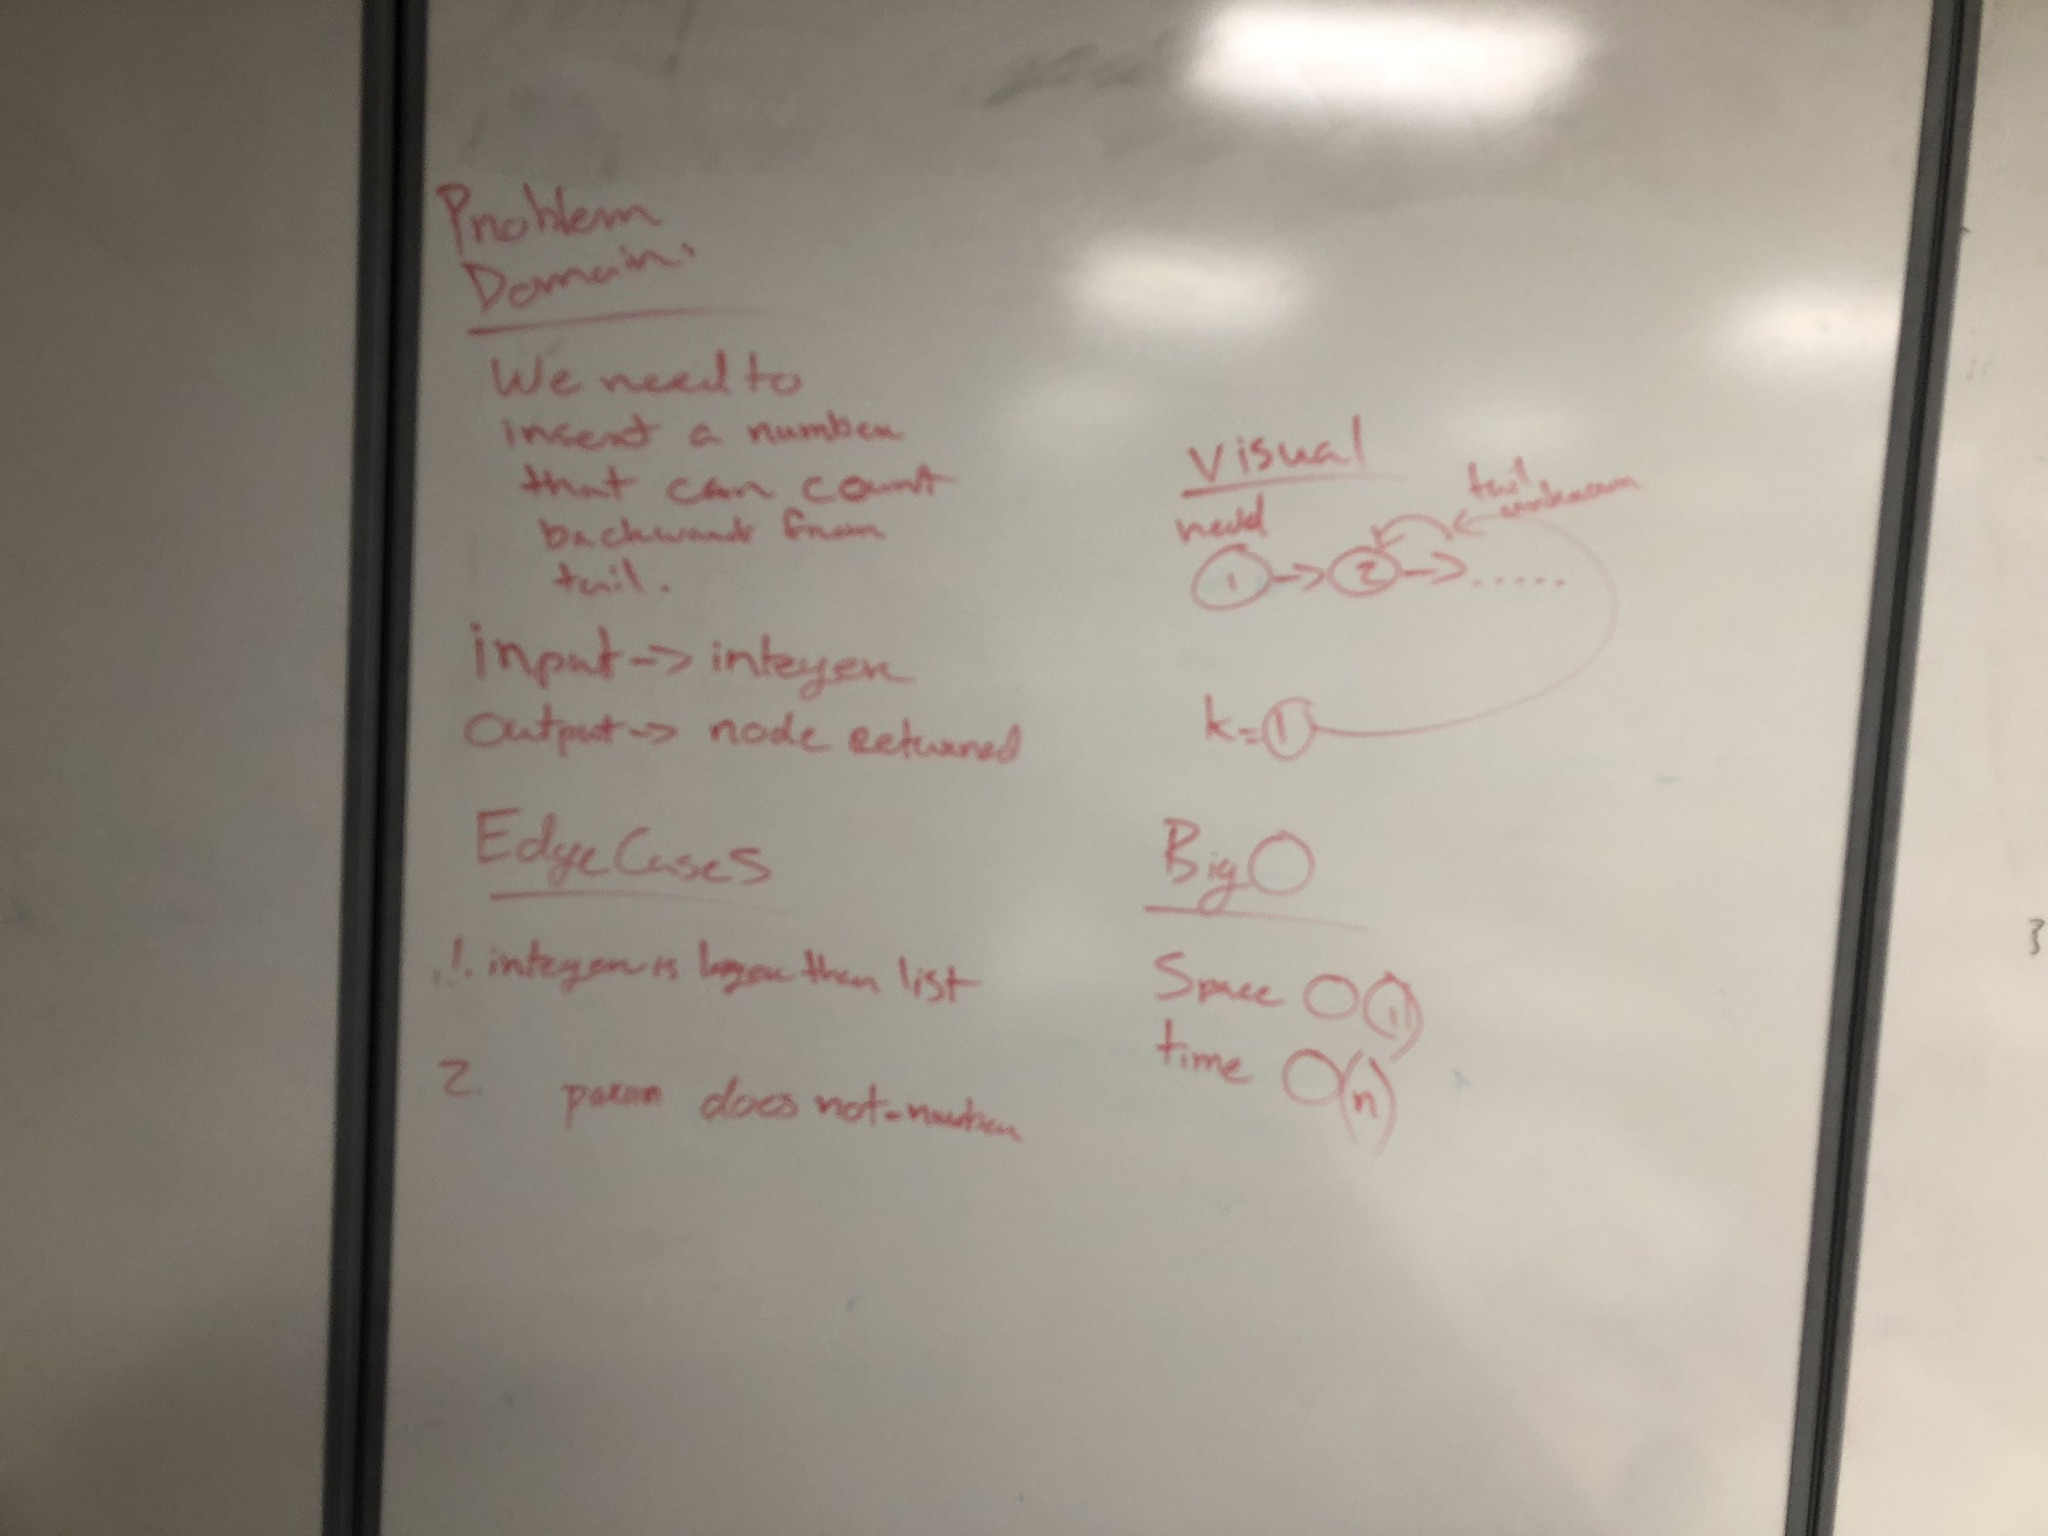 Problem
Domain:
We need to
insert a number
that can count
backwards from
tail.
input -> integer
Output -> node returned
Edge Cases
1. integer is larger than list
2. param does not-number
Visual
head
tail
unknown
1 -> 2 -> .....
k = 1
Big O
Space O(1)
time O(n)
3